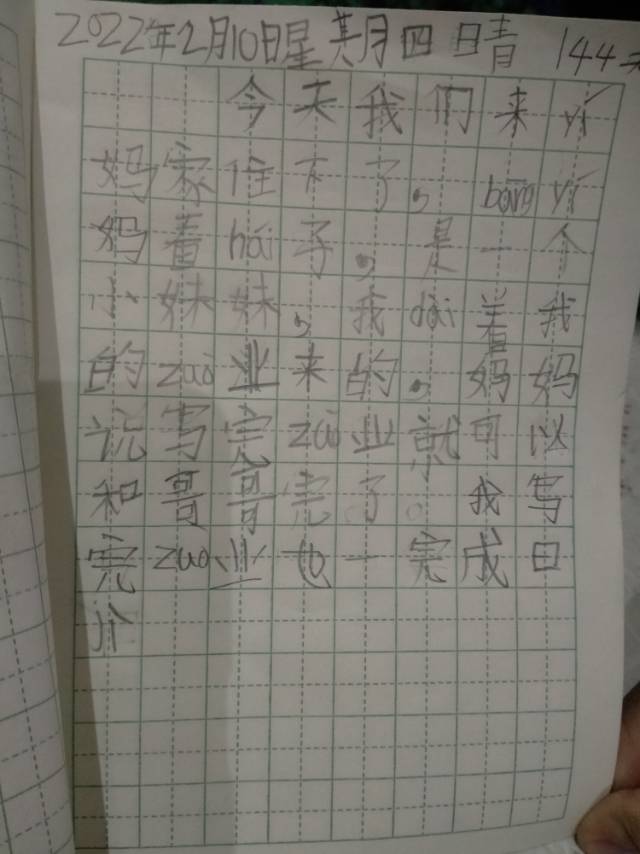 2022年2月10日星期四 日青 144天
今天我们来yí
妈家住下了，bāng yí
妈看hái子，是一个
小妹妹，我dài着我
的zuò业来的。妈妈
说写完zuò业就可以
和哥哥完了。我写
完zuò业也一完成日